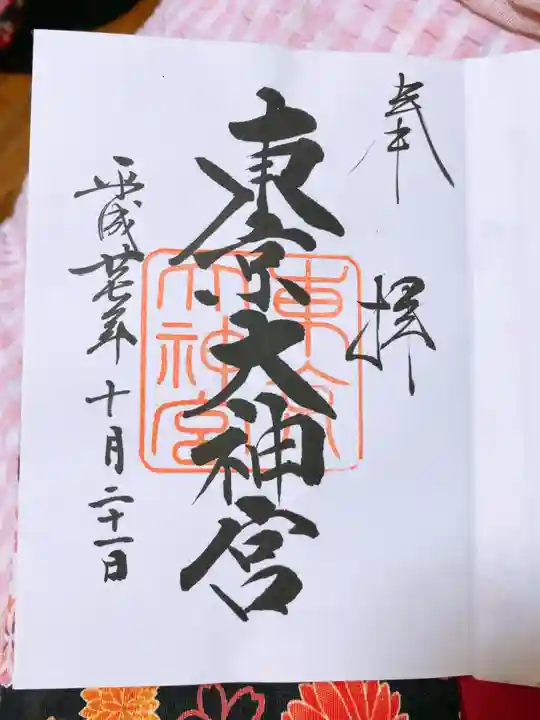 奉拝
東京大神宮
東京大神宮
平成廿七年十月二十一日